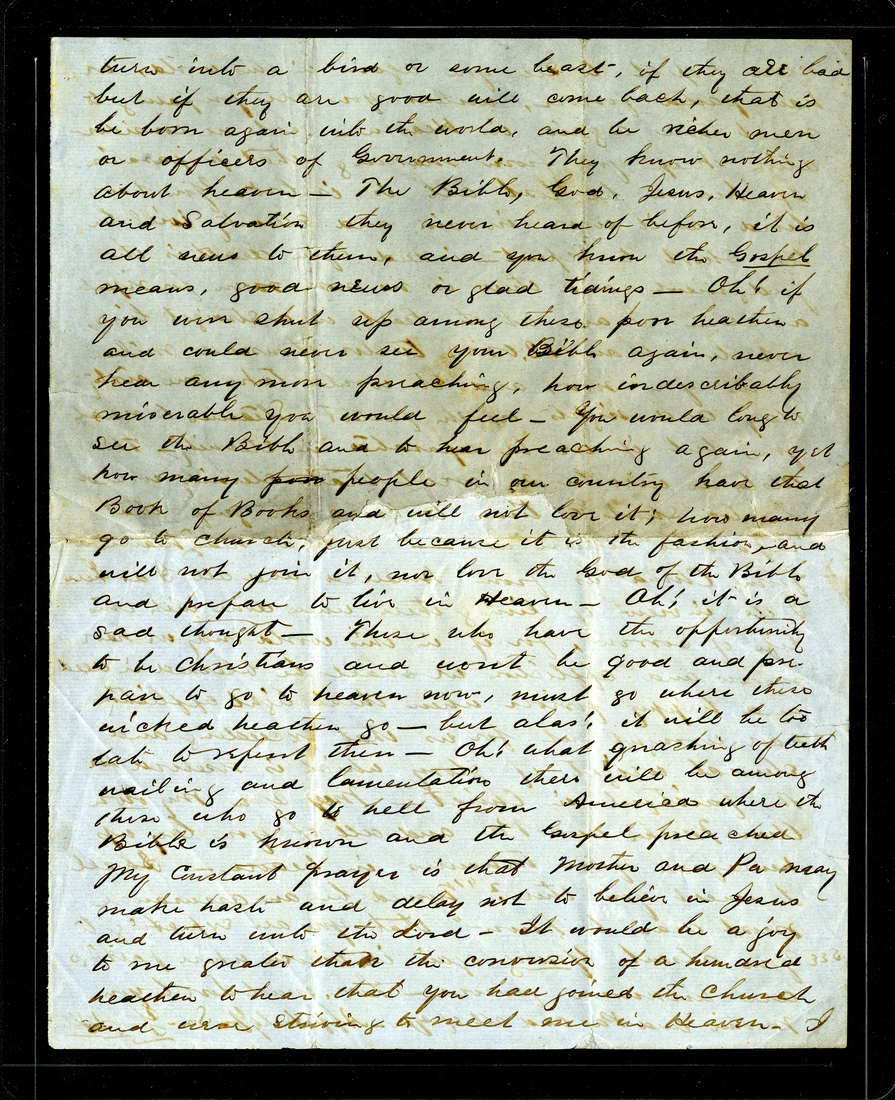 turn into a bird or some beast, if they are bad
but if they are good will come back, that is
be born again into the world, and be richer men
or officers of Government. They know nothing
about heaven — The Bible, God, Jesus, Heaven
and Salvation they never heard of before, it is
all news to them, and you know the Gospel
means, good news or glad tidings — Oh! if
you were shut up among these poor heathen
and could never see your Bible again, never
hear any more preaching, how indescribably
miserable you would feel — You would long to
see the Bible and to hear preaching again, yet
how many poor people in our country have that
Book of Books and will not love it; how many
go to church, just because it is the fashion, and
will not join it, nor love the God of the Bible
and prepare to live in Heaven — Oh! it is a
sad thought — Those who have the opportunity
to be Christians and wont be good and pre-
pare to go to heaven now, must go where these
wicked heathen go — but alas! it will be too
late to repent then — Oh! what gnashing of teeth
wailing and lamentation there will be among
those who go to hell from America where the
Bible is known and the Gospel preached
My Constant prayer is that Mother and Pa may
make haste and delay not to believe in Jesus
and turn unto the Lord — It would be a joy
to me greater than the conversion of a hundred
heathen to hear that you had joined the Church
and were striving to meet me in Heaven — I